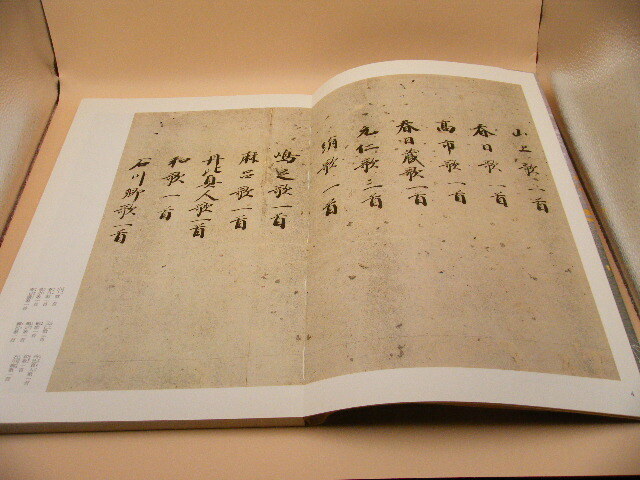 山上歌一首
春日歌一首
高市歌一首
春日蔵歌一首
元仁歌三首
絹歌一首
嶋足歌一首
麻呂歌一首
丹比真人歌一首
和歌一首
石川卿歌一首